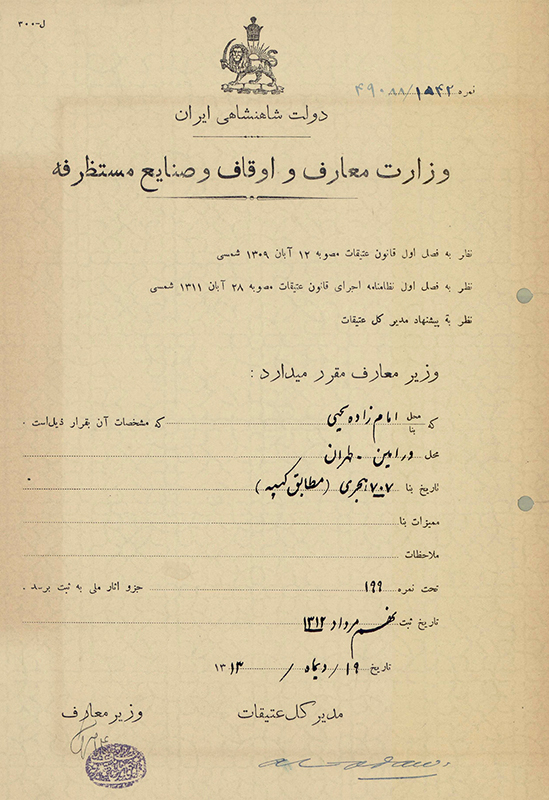 ل-۳۰۰
نمره ۴۹۰۸۸/۱۵۴۲
دولت شاهنشاهی ایران
وزارت معارف و اوقاف و صنایع مستظرفه
نظر به فصل اول قانون عتیقات مصوبه ۱۲ آبان ۱۳۰۹ شمسی
نظر به فصل اول نظامنامه اجرای قانون عتیقات مصوبه ۲۸ آبان ۱۳۱۱ شمسی
نظر بة پیشنهاد مدیر کل عتیقات
وزیر معارف مقرر میدارد :
که محل بنا امام زاده یحیی که مشخصات آن بقرار ذیل است .
محل ورامین - طهران
تاریخ بنا ۷۰۷ هجری (مطابق کتیبه)
ممیزات بنا
ملاحظات
تحت نمره ۱۹۹ جزو آثار ملی به ثبت برسد .
تاریخ ثبت نهم مرداد ۱۳۱۲
تاریخ ۱۹ / دیماه / ۱۳۱۳
مدیر کل عتیقات
وزیر معارف